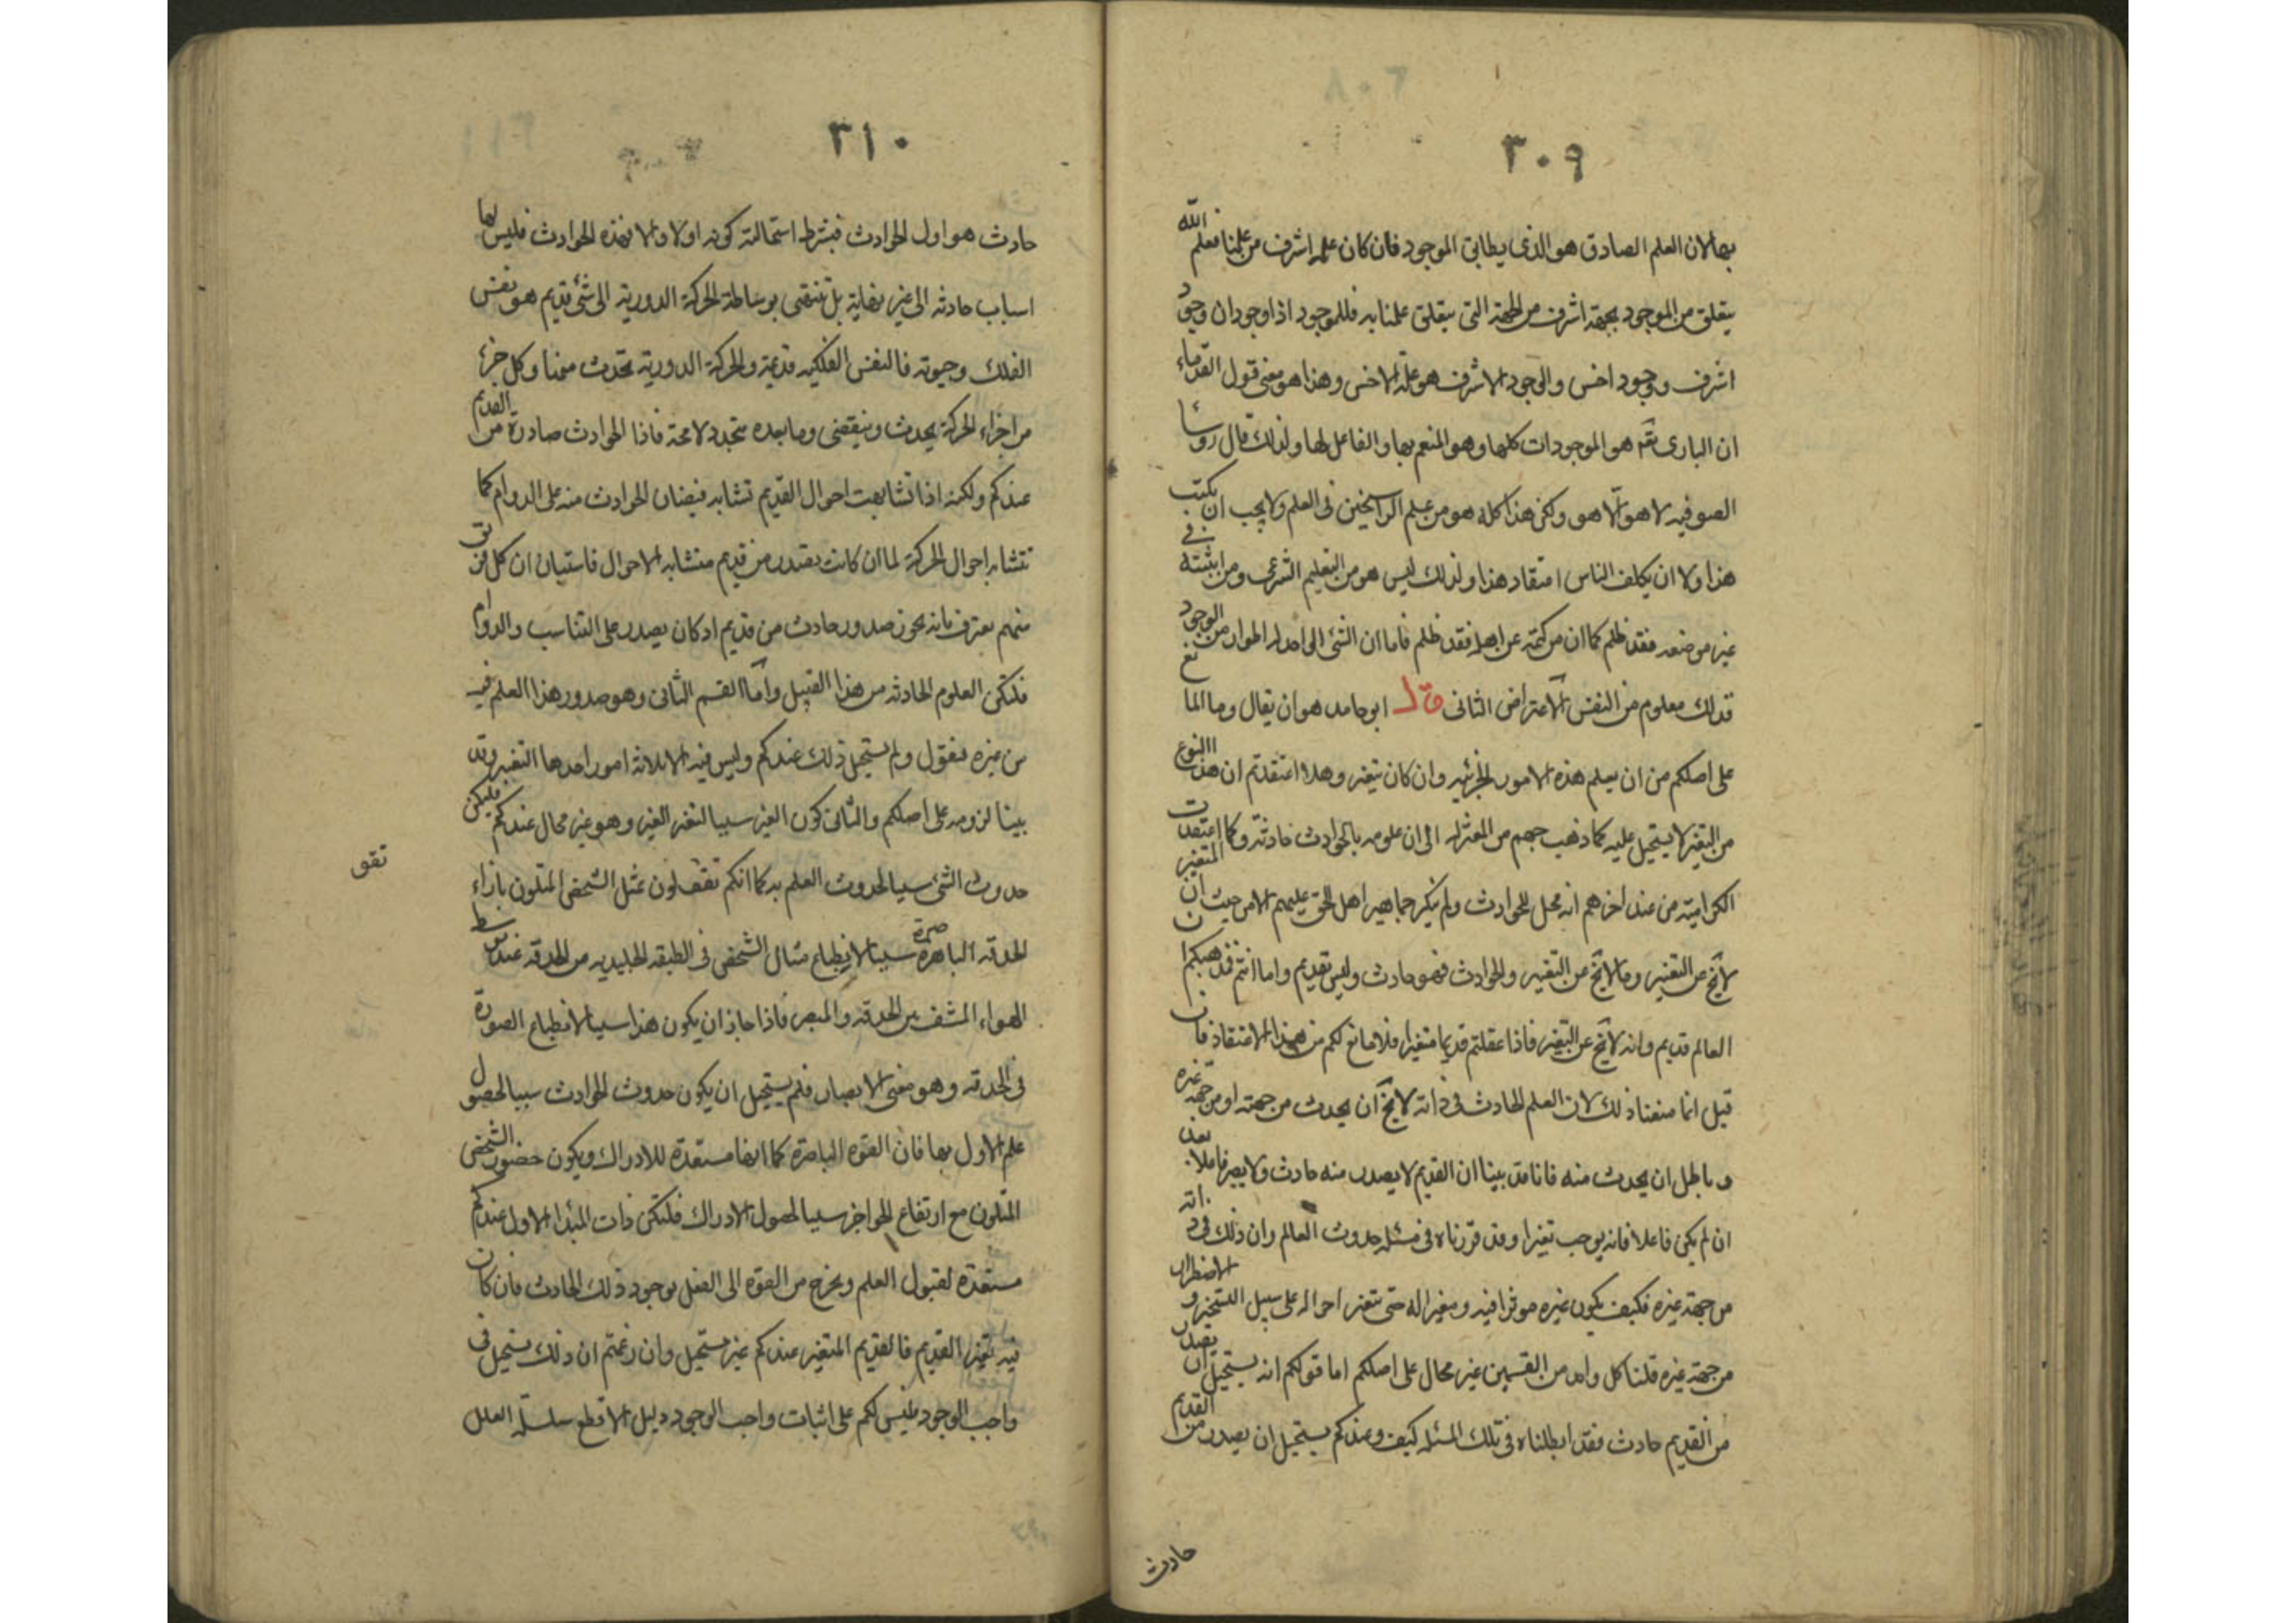 ٣٠٩
بها لان العلم الصادق هو الذى يطابق الموجود فان كان علمه اشرف من علمنا فعلم الله
يتعلق من الموجود بجهة اشرف من الجهة التى يتعلق علمنا به فللموجود اذا وجودان وجود
اشرف ووجود اخس والوجود الاشرف هو علة الاخس وهذا هو معنى قول القدماء
ان البارى تعم هو الموجودات كلها وهو المنعم بها والفاعل لها ولذلك قال روسا
الصوفيه لا هو الا هو ولكن هذا كله هو من علم الراسخين فى العلم ولا يجب ان يكتب
هذا ولا ان يكلف الناس اعتقاد هذا ولذلك ليس هو من التعليم الشرعى ومن اثبته فى
غير موضعه فقد ظلم كما ان من كتمه عن اهله فقد ظلم فاما ان الشئ الواحد له اطوار من الوجود
فذلك معلوم من النفس الاعتراض الثانى قال ابو حامد هو ان يقال وما المانع
على اصلكم من ان يعلم هذه الامور الجزئيه وان كان يتغير وهلا اعتقدتم ان هذا النوع
من التغير لا يستحيل عليه كما ذهب جهم من المعتزله الى ان علومه بالحوادث حادثة وكما اعتقدت
الكراميه من عند اخرهم انه محل للحوادث ولم ينكر جماهير اهل الحق عليهم الا من حيث ان المتغير
لا يخ عن التغير وما لا يخ عن التغير والحوادث فهو حادث وليس بقديم واما انتم فمذهبكم ان
العالم قديم وانه لا يخ عن التغير فاذا عقلتم قديما متغيرا فلا مانع لكم من هذا الاعتقاد فان
قيل انما منعنا ذلك لان العلم الحادث فى ذاته لا يخ ان يحدث من جهته او من جهة غيره
وباطل ان يحدث منه فانا قد بينا ان القديم لا يصدر منه حادث ولا يصير فاعلا بعد
ان لم يكن فاعلا فانه يوجب تغيرا وقد قررناه فى مسئلة حدوث العالم وان ذلك فى ذاته
من جهة غيره فكيف يكون غيره موثرا فيه ومغيرا له حتى يتغير احواله على سبيل التسخير والاضطرار
من جهة غيره قلنا كل واحد من القسمين غير محال على اصلكم اما قولكم انه يستحيل ان يصدر
من القديم حادث فقد ابطلناه فى تلك المسئله كيف وعندكم يستحيل ان يصدر من القديم
حادث
٣١٠
حادث هو اول الحوادث فبشرط استحالته كونه اولا والا فهذه الحوادث فليس لها
اسباب حادثه الى غير نهاية بل تنتهى بوساطة الحركة الدورية الى شئ قديم هو نفس
الفلك وحيوته فالنفس الفلكيه قديمة والحركة الدورية تحدث منها وكل جزء
من اجزاء الحركة يحدث وينقضى وما بعده متجدد لا محة فاذا الحوادث صادرة من القديم
عندكم ولكنه اذا تشابهت احوال القديم تشابه فيضان الحوادث منه على الدوام كما
تتشابه احوال الحركة لما ان كانت تصدر من قديم متشابه الاحوال فاستبان ان كل فريق
منهم يعترف بانه يجوز صدور حادث من قديم اذ كان يصدر على التناسب والدوام
فلتكن العلوم الحادثه من هذا القبيل واما القسم الثانى وهو صدور هذا العلم فيه
من غيره فنقول ولم يستحيل ذلك عندكم وليس فيه الا ثلاثة امور احدها التغير وقد
بينا لزومه على اصلكم والثانى كون الغير سببا لتغير الغير وهو غير محال عندكم فليكن
حدوث الشئ سببا لحدوث العلم به كما انكم تقولون تمثل الشخص المتلون بازاء
تقو
الحدقه الباصرة سببا لانطباع مثال الشخص فى الطبقه الجليديه من الحدقه عند توسط
الهواء المشف بين الحدقه والمبصر فاذا جاز ان يكون هذا سببا لانطباع الصورة
فى الحدقه وهو معنى الابصار فلم يستحيل ان يكون حدوث الحوادث سببا لحصول
علم الاول بها فان القوه الباصرة كما انها مستعدة للادراك ويكون حضور الشخص
المتلون مع ارتفاع الحواجز سببا لحصول الادراك فلتكن ذات المبدا الاول عندكم
مستعدة لقبول العلم ويخرج من القوه الى الفعل بوجود ذلك الحادث فان كان
فيه تغير القديم فالقديم المتغير عندكم غير مستحيل وان زعمتم ان ذلك يستحيل فى
واجب الوجود فليس لكم على اثبات واجب الوجود دليل الا قطع سلسلة العلل